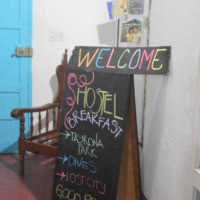 WELCOME
HOSTEL
BREAKFAST
→ TAYRONA
PARK
→ DIVES
→ LOST CITY
GOOD